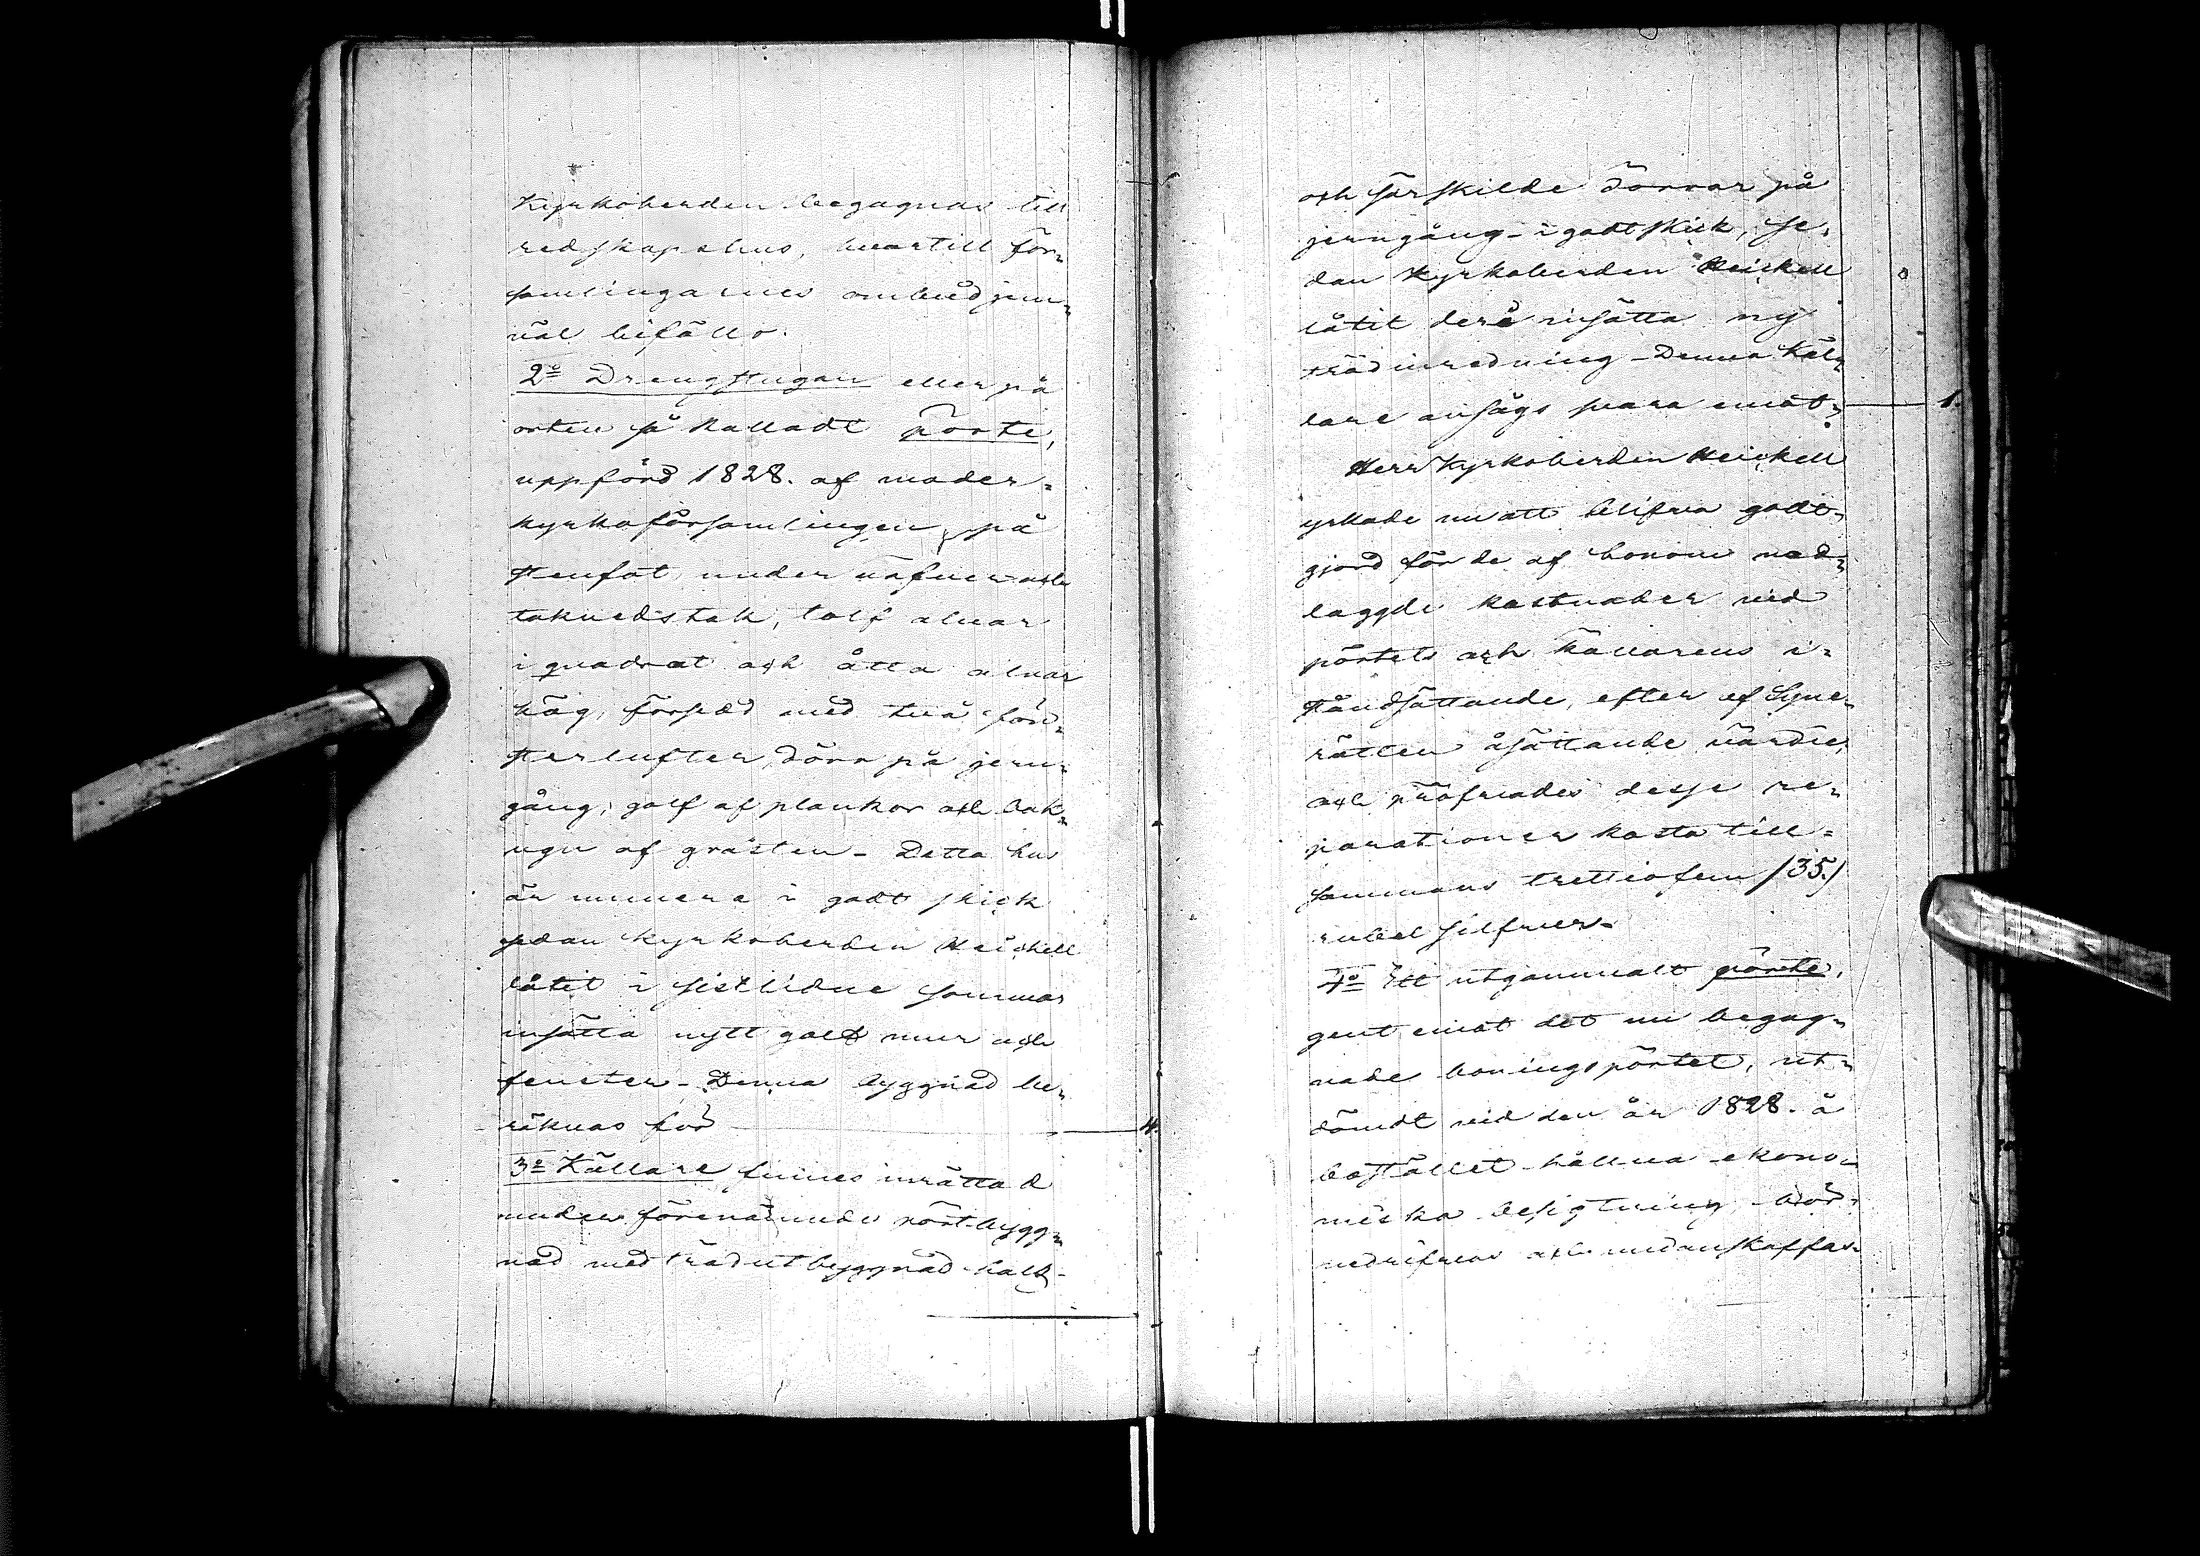 Kyrkoherden begagnas till
redskapshus, hvartill för-
samlingarnes ombud jem-
väl biföllo.
2o Drengstugan eller på
orten så kalladt pörte,
uppförd 1828. af moder-
kyrkoförsamlingen, på
stenfot, under näfver och
takvedstak, tolf alnar
i quadrat och åtta alnar
hög, försedd med två fön-
sterlufter, dörr på jern-
gång, golf af plankor och bak-
ugn af gråsten - Detta hus
är numera i godt skick
sedan Kyrkoherden Heickell
låtit i sistlidne sommar
insätta nytt golf mur och
fenster - Denna byggnad be-
räknas för 4.
3o Källare finnes inrättad
under förenämnde pört-bygg-
nad med trädutbyggnad
och särskilde dörrar på
jerngång i godt skick, se-
dan Kyrkoherden Heickell
låtit derå insätta ny
trädinredning - Denna Käl-
lare ansågs svara emot 1.
Herr Kyrkoherden Heickell
yrkade nu att blifva godt-
gjord för de af honom ned-
laggde kostnader vid
pörtets och källarens i-
ståndsättande, efter af Syne-
rätten åsättande värde,
och pröfvades desse re-
parationer kosta till-
sammans trettiofem /35./
rubel silfver.
4o Ett utgammalt pörte,
gent emot det nu begag-
nade boningspörtet, ut-
dömdt vid den år 1828. å
bostället hållna ekono-
miska besigtning, bör
nedrifvas och undanskaffas.